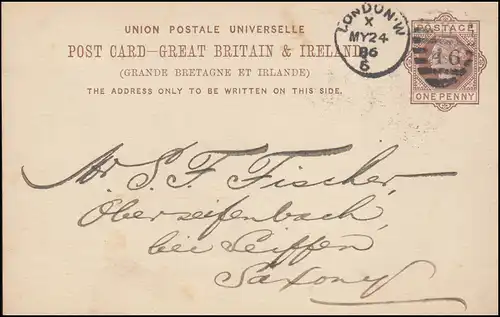 UNION POSTALE UNIVERSELLE
POST CARD–GREAT BRITAIN & IRELAND
(GRANDE BRETAGNE ET IRLANDE)
THE ADDRESS ONLY TO BE WRITTEN ON THIS SIDE.
LONDON·W
X
MY24
86
6
POSTAGE
46
ONE PENNY
Mr. S. F. Fischer,
Oberseifenbach,
bei Seiffen
Saxony